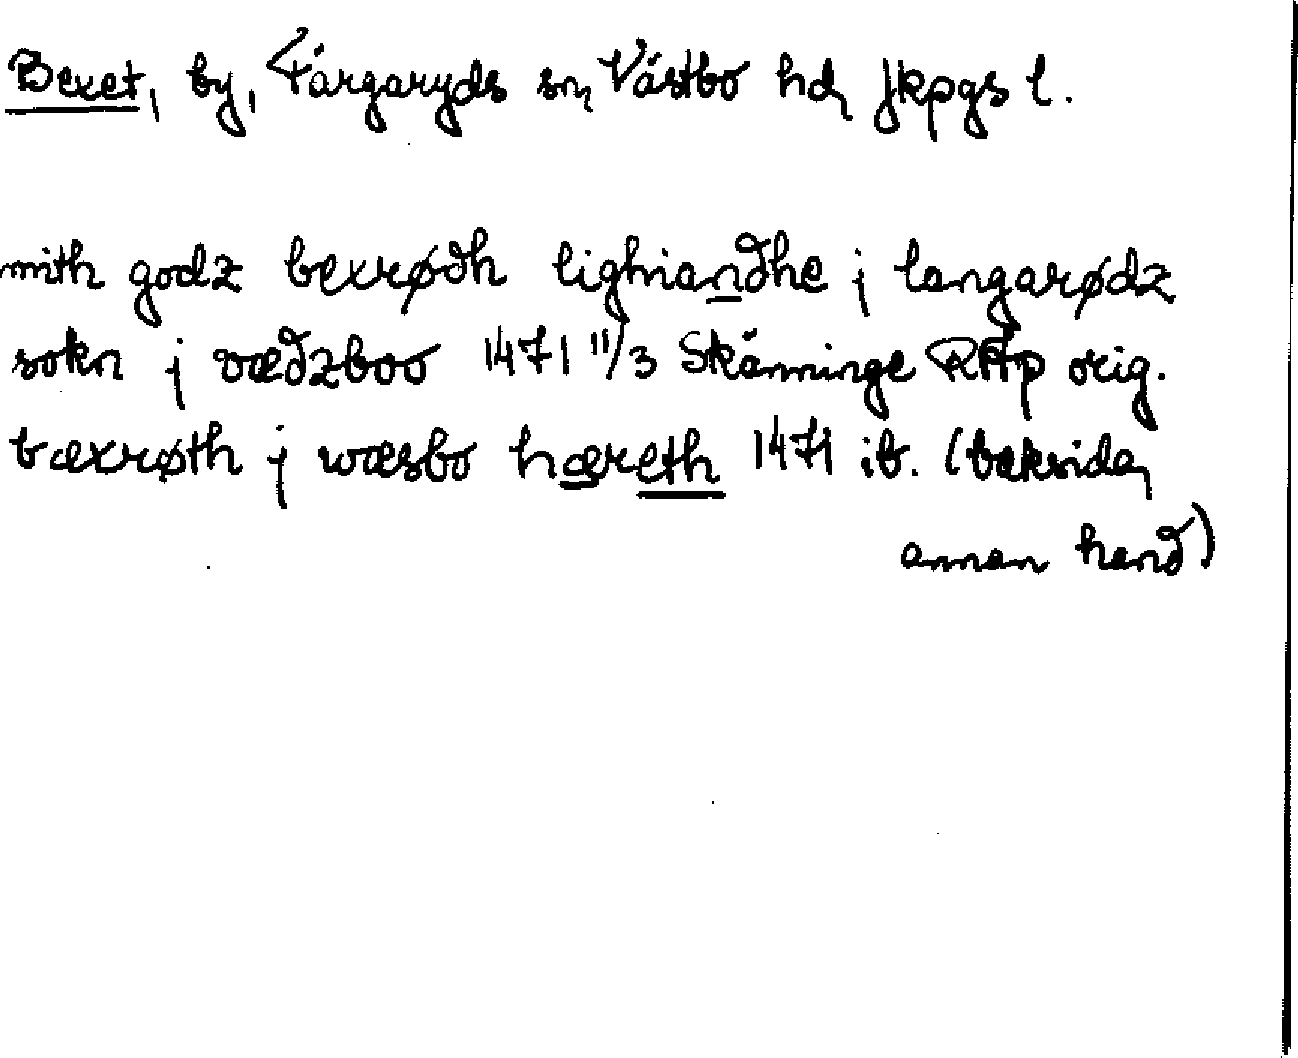 Bexet, by, Färgaryds sn, Västbo hd, Jkpgs l.
mith godz bexrødh lighiandhe j langarødz
sokn j vædzboo 1471 11/3 Skänninge RAp orig.
bæxrøth j wæsbo hæreth 1471 ib. (baksida,
annan hand)